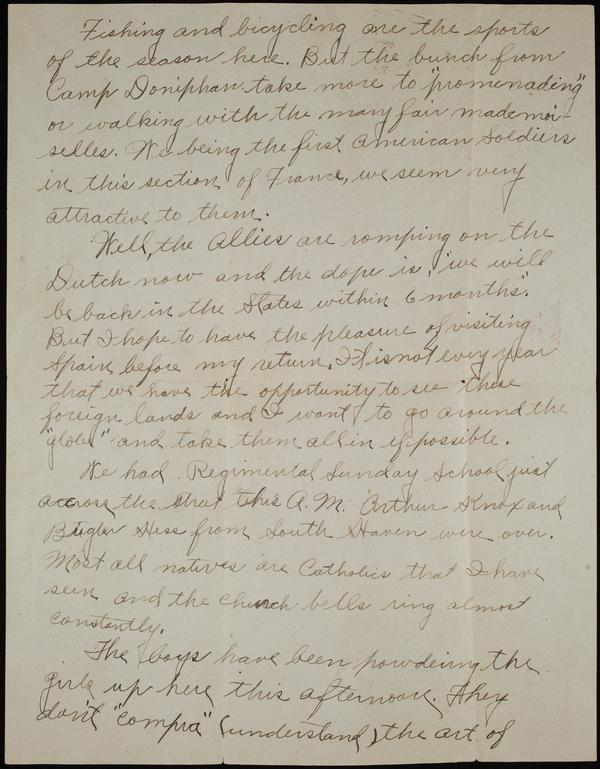 Fishing and bicycling are the sports
of the season here. But the bunch from
Camp Doniphan take more to "promenading"
or walking with the many fair mademoi-
selles. We being the first American Soldiers
in this section of France, we seem very
attractive to them.
Well, the Allies are romping on the
Dutch now and the dope is, "we will
be back in the States within 6 months".
But I hope to have the pleasure of visiting
Spain before my return. It is not every year
that we have the opportunity to see these
foreign lands and I want to go around the
"globe" and take them all in if possible.
We had Regimental Sunday School just
across the street this A.M. Arthur Knox and
Bugler Hess from South Haven were over.
Most all natives are Catholics that I have
seen and the church bells ring almost
constantly.
The boys have been powdering the
girls up here this afternoon. They
don't "compra" (understand) the art of